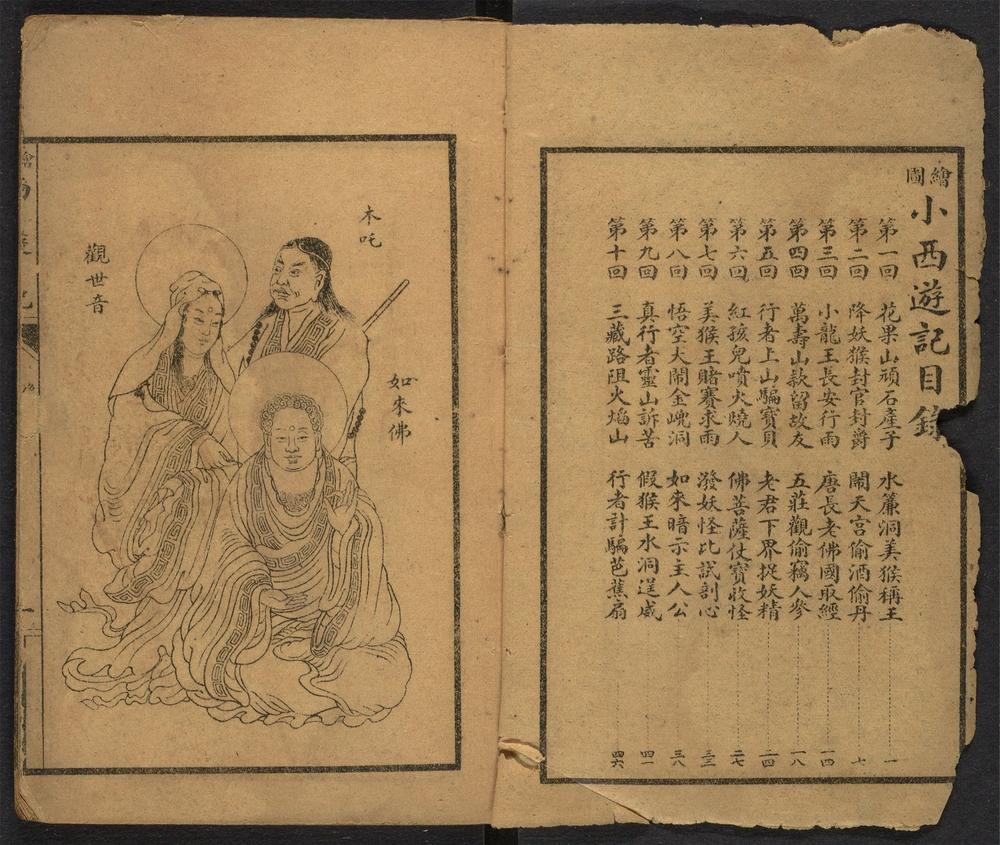 繪圖
小西遊記目錄
第一回 花果山頑石產子 水簾洞美猴稱王 一
第二回 降妖猴封官封爵 鬧天宮偷酒偷丹 七
第三回 小龍王長安行雨 唐長老佛國取經 一四
第四回 萬壽山款留故友 五莊觀偷竊人參 一八
第五回 行者上山騙寶貝 老君下界捉妖精 二四
第六回 紅孩兒噴火燒人 佛菩薩仗寶收怪 二七
第七回 美猴王賭賽求雨 潑妖怪比試剖心 三三
第八回 悟空大鬧金𡺸洞 如來暗示主人公 三八
第九回 真行者靈山訴苦 假猴王水洞逞威 四一
第十回 三藏路阻火焰山 行者計騙芭蕉扇 四六
木吒
如來佛
觀世音